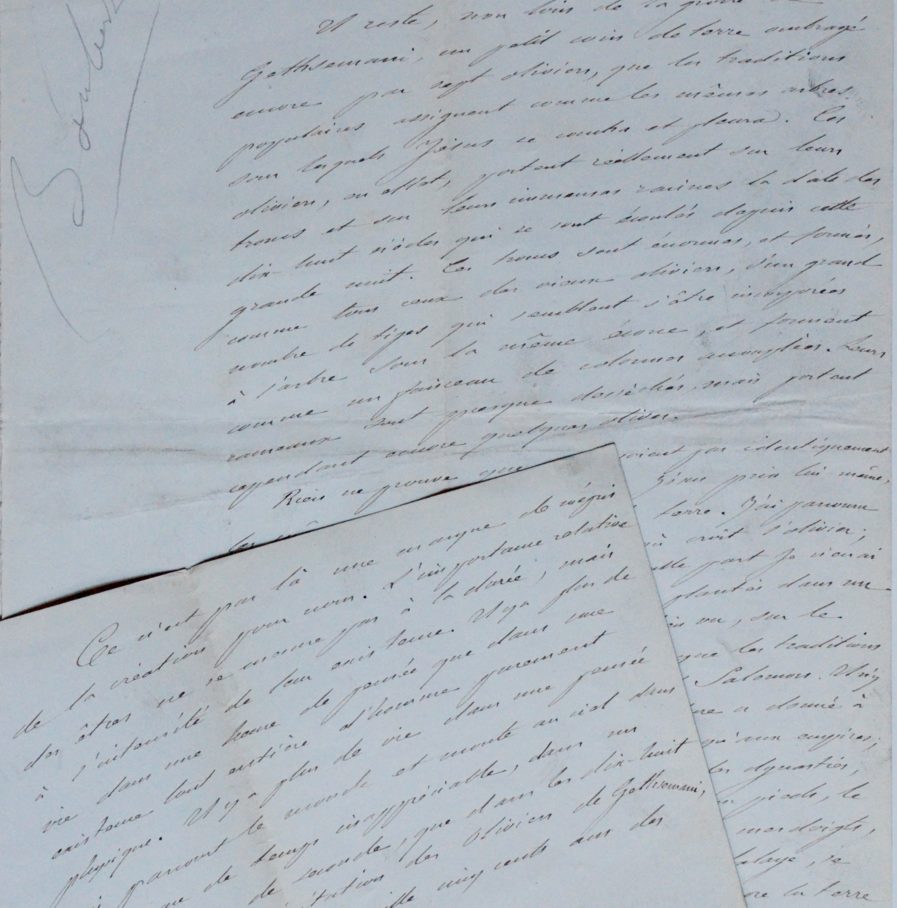 Il reste, non loin de la grotte de
Gethsemani, un petit coin de terre ombragé
encore par sept oliviers, que les traditions
populaires assignent comme les mêmes arbres
sous lesquels Jésus se coucha et pleura. Ces
oliviers, en effet, portent réellement sur leurs
troncs et sur leurs immenses racines la date des
dix-huit siècles qui se sont écoulés depuis cette
grande nuit. Ces troncs sont énormes, et formés,
comme tous ceux des vieux oliviers, d'un grand
nombre de tiges qui semblent s'être incorporées
à l'arbre sous la même écorce, et forment
comme un faisceau de colonnes accouplées. Leurs
rameaux sont presque desséchés, mais portent
cependant encore quelques olives.
Rien ne prouve que
soient pas identiquement
Jésus pria lui même,
terre. J'ai parcouru
où croît l'olivier;
part je n'ai
plantés dans un
vu, sur le
que les traditions
Salomon. Il n'y
a donné à
qu'aux empires;
dynasties,
pieds, le
mes doigts,
je
la terre
Ce n'est pas là une marque de mépris
de la création pour nous. L'importance relative
des êtres ne se mesure pas à la durée, mais
à l'intensité de leur existence. Il y a plus de
vie dans une heure de pensée que dans une
existence tout entière d'homme purement
physique. Il y a plus de vie dans une pensée
parcourt le monde et monte au ciel dans
de temps inappréciable, dans un
de seconde, que dans les dix-huit
des oliviers de Gethsemani,
cinq cents ans des